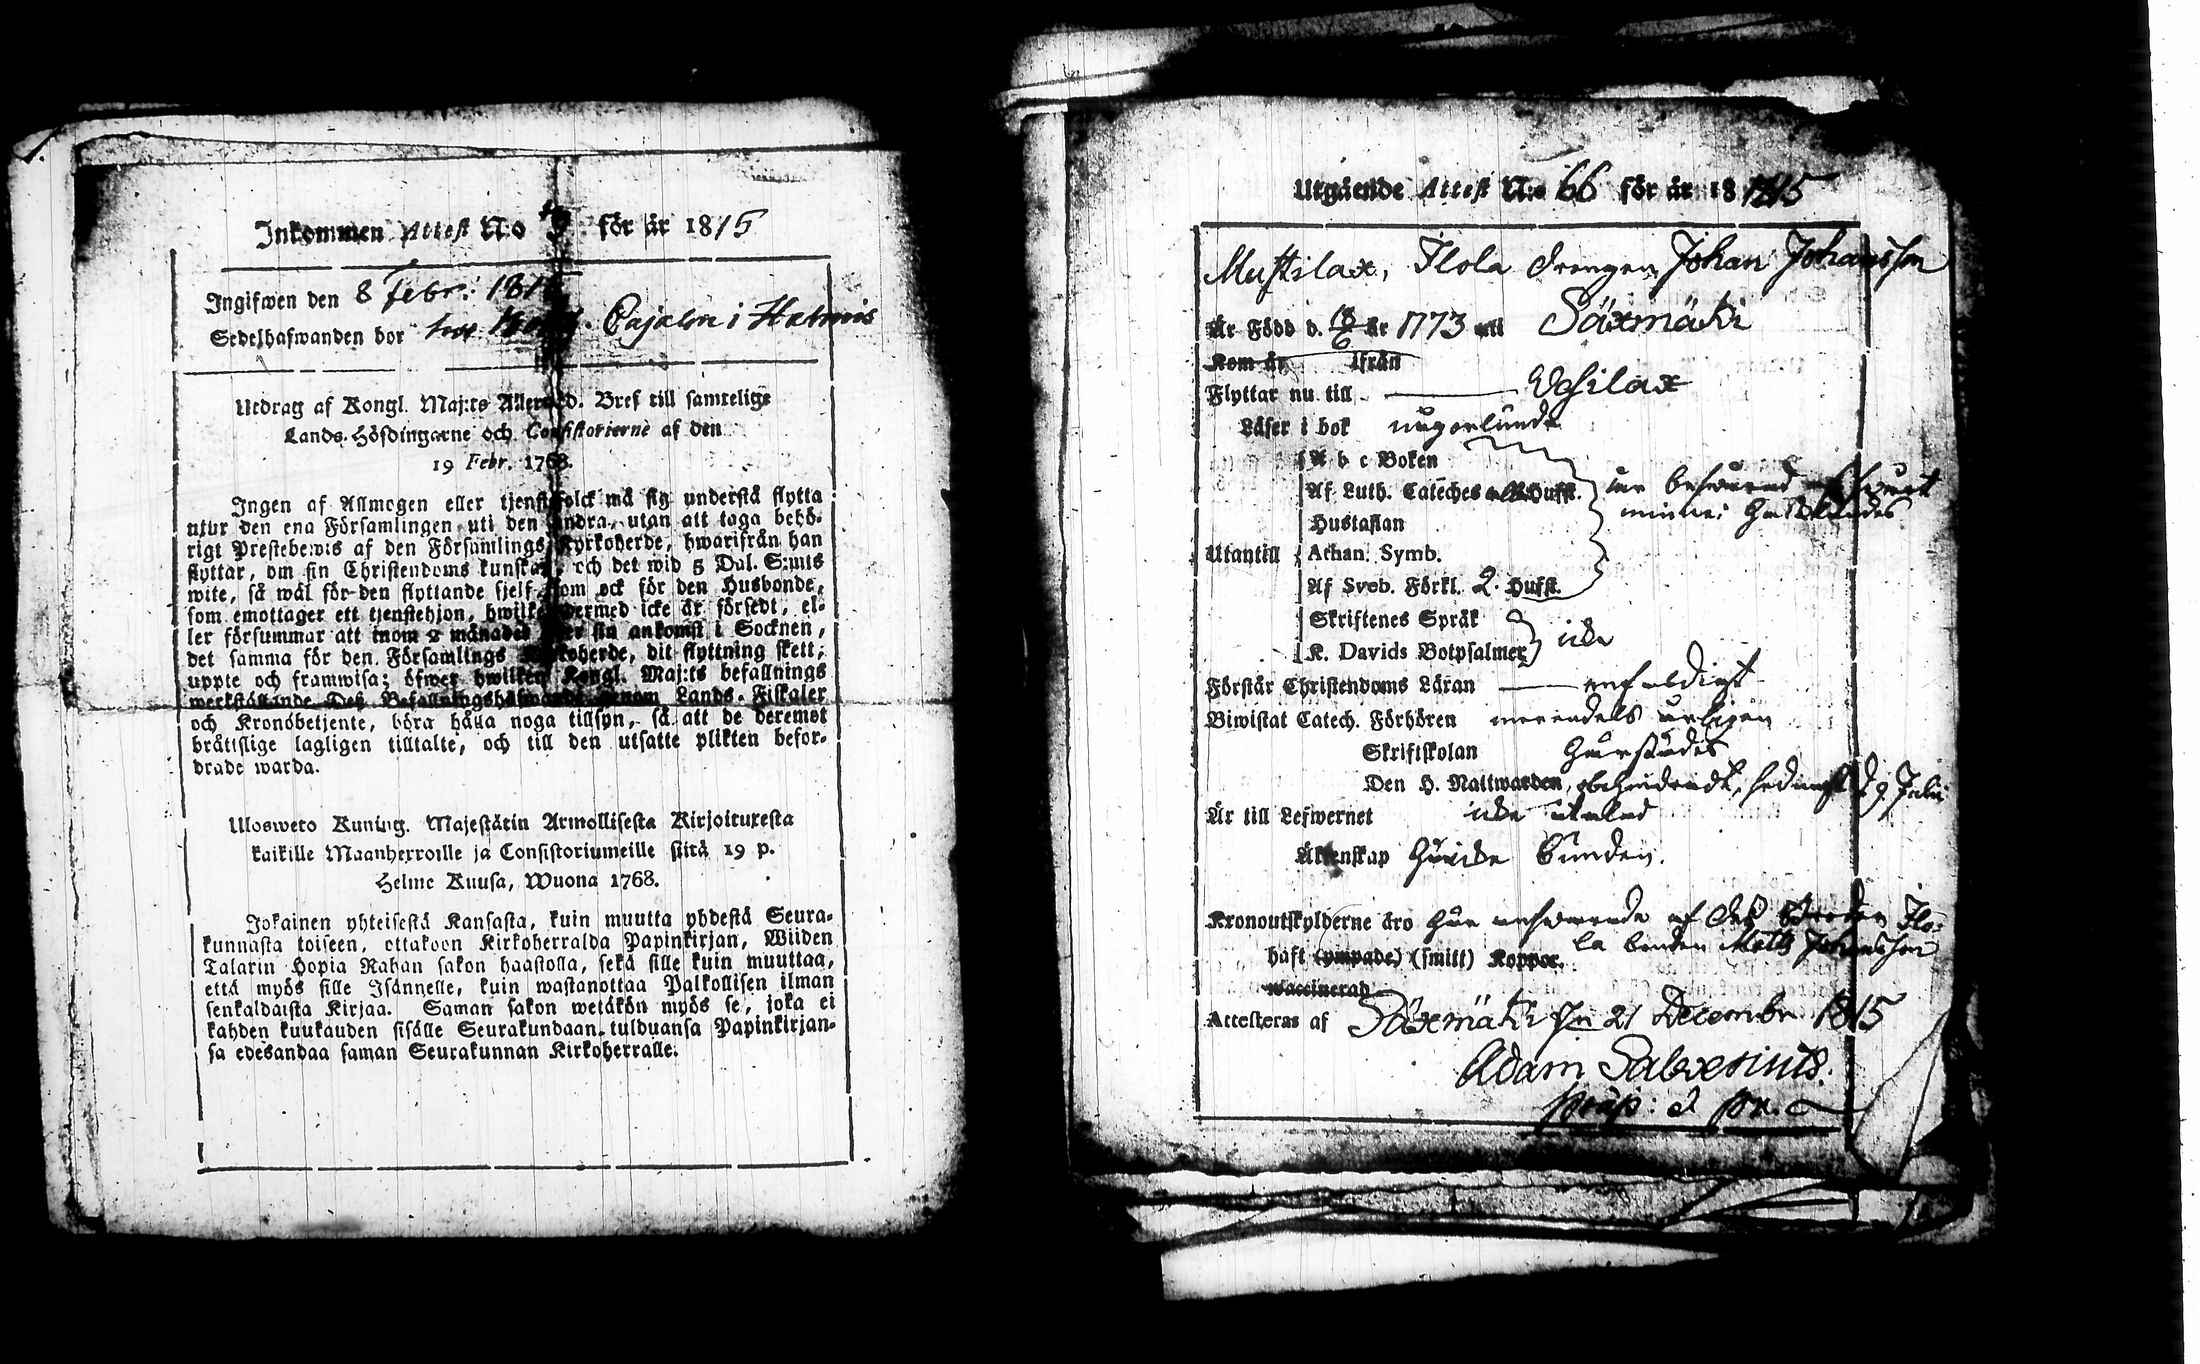 Inkommen Attest N:o 3 för år 1815
Ingifwen den 8 Febr: 181
Sedelhafwanden bor Cajaloe i Hatmis
Utdrag af Kongl. Maj:ts Allernåd. Bref till samtelige
Lands-Höfdingarne och Consistorierne af den
19 Febr. 1768.
Ingen af Allmogen eller tjenstefolck må sig understå flytta
utur den ena Församlingen uti den andra, utan att taga behö-
rigt Prestebewis af den Församlings Kyrkoherde, hwarifrån han
flyttar, om sin Christendoms kunskap, och det wid 5 Dal. S:mts
wite, så wäl för den flyttande sjelf, som ock för den Husbonde,
som emottager ett tjenstehjon, hwilket dermed icke är försedt, el-
ler försummar att inom 2 månader efter sin ankomst i Socknen,
det samma för den Församlings Kyrkoherde, dit flyttning skett,
uppte och framwisa; öfwer hwilken Kongl. Maj:ts befallnings
werkställande Deß Befallningshafwande genom Lands-Fiskaler
och Kronobetjente, böra hålla noga tillsyn, så att de deremot
bråttslige lagligen tilltalte, och till den utsatte plikten befor-
drade warda.
Ulosweto Kuning. Majestätin Armollisesta Kirjoituxesta
kaikille Maanherroille ja Consistoriumeille siitä 19 p.
Helme Kuusa, Wuona 1768.
Jokainen yhteisestä Kansasta, kuin muutta yhdestä Seura-
kunnasta toiseen, ottakoon Kirkoherralda Papinkirjan, Wiiden
Talarin Hopia Rahan sakon haastolla, sekä sille kuin muuttaa,
että myös sille Isännelle, kuin wastanottaa Palkollisen ilman
senkaldaista Kirjaa. Saman sakon wetäkön myös se, joka ei
kahden kuukauden sisälle Seurakundaan tulduansa Papinkirjan-
sa edesandaa saman Seurakunnan Kirkoherralle.
Utgående Attest N:o 66 för år 18 1815
Mustilax, Ilola Drengen Johan Johansson
Är Född d. 18/6 år 1773 uti Säxmäki
Kom år ifrån
Flyttar nu till Vesilax
Läser i bok någorlunda
A b c Boken
Af Luth. Cateches alla Hufst.
Hustaflan
Utantill Athan. Symb.
Af Sveb. Förkl. 2 Hufst.
minne
Skriftenes Språk
K. Davids Botpsalmer icke
Förstår Christendoms Läran enfaldigt
Biwistat Catech. Förhören merendels årligen
Skriftskolan
Den H. Nattwarden, obehindradt, sednast d. 9 Julii
Är till Lefwernet icke
Äktenskap bunden.
Kronoutskylderne äro af Deß Broder Ilo-
la bonden Matts Johansson
haft (ympade) (smitt) Koppor.
waccinerad
Attesteras af Säxmäki den 21 Decembr. 1815
Adam Salvenius.